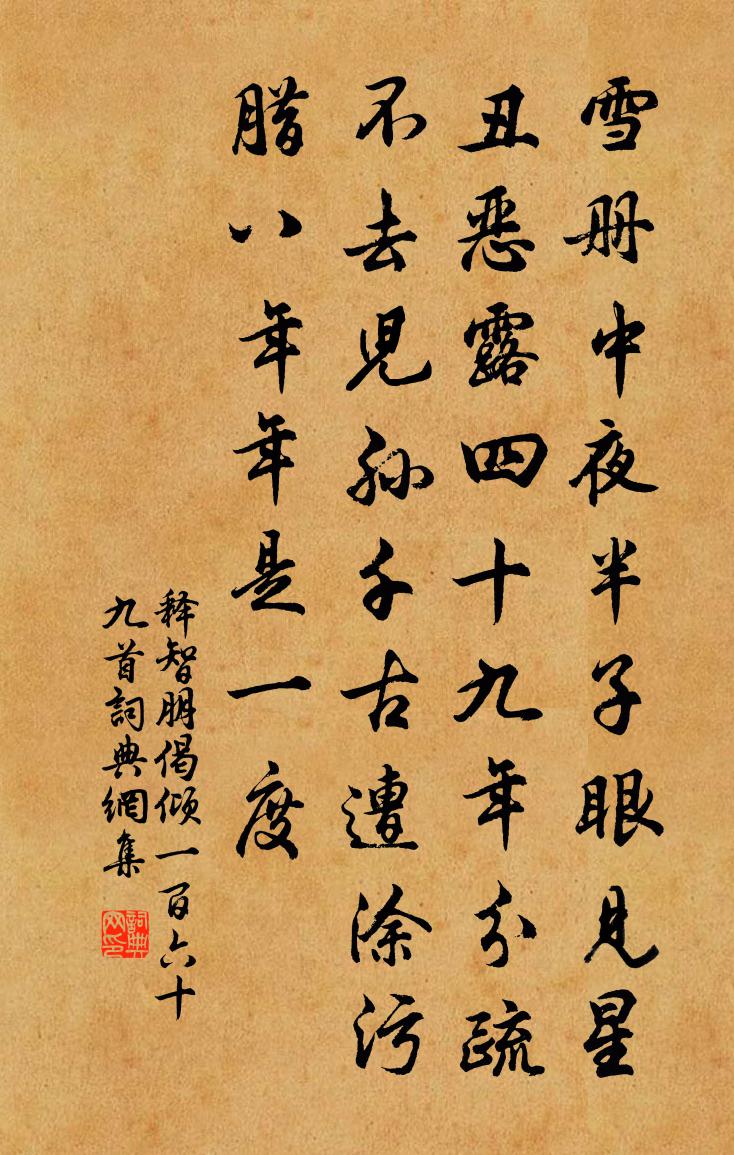 雪册中夜半子眼見星
丑恶露四十九年分疏
不去児孫千古遭涂污
腊八年年是一度
释智朋偈倾一百六十
九首詞典網集
詞典网印